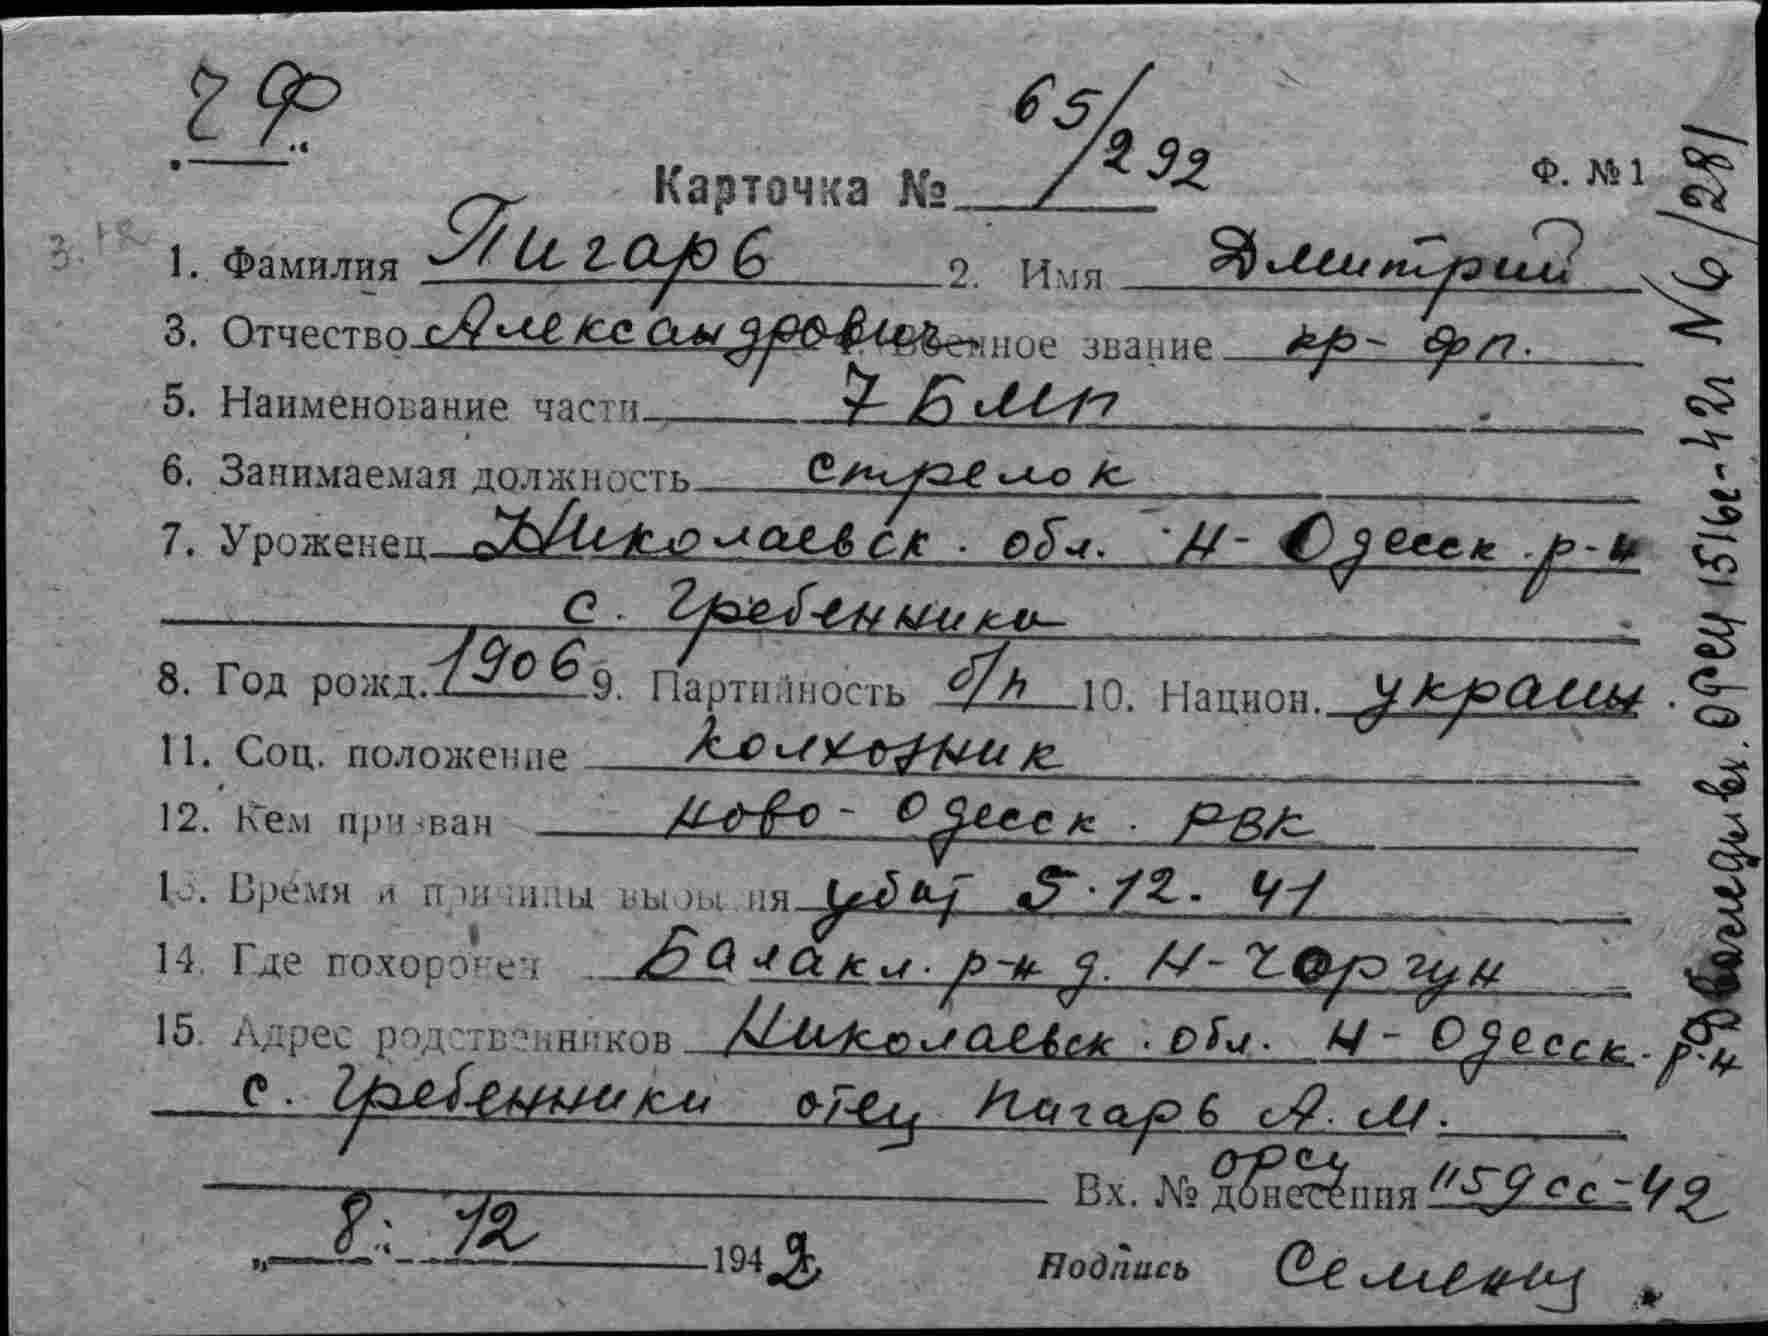 ЧФ
65/292
Карточка №
Ф. № 1
1. Фамилия Пигарь 2. Имя Дмитрий
3. Отчество Александрович Военное звание кр-фл.
5. Наименование части 7 БМП
6. Занимаемая должность стрелок
7. Уроженец Николаевск. обл. Н-Одесск. р-н
с. Гребенники
8. Год рожд. 1906 9. Партийность б/п 10. Национ. украин.
11. Соц. положение колхозник
12. Кем призван Ново-Одесск. РВК
13. Время и причины выбытия убит 5.12.41
14. Где похоронен Балакл. р-н д. Н-Чоргун
15. Адрес родственников Николаевск. обл. Н-Одесск. р-н
с. Гребенники отец Пигарь А. М.
орсу
Вх. № донесения 1159сс-42
8. 12 1942
Подпись Семенец
вх. 1516с-42г N 6/281